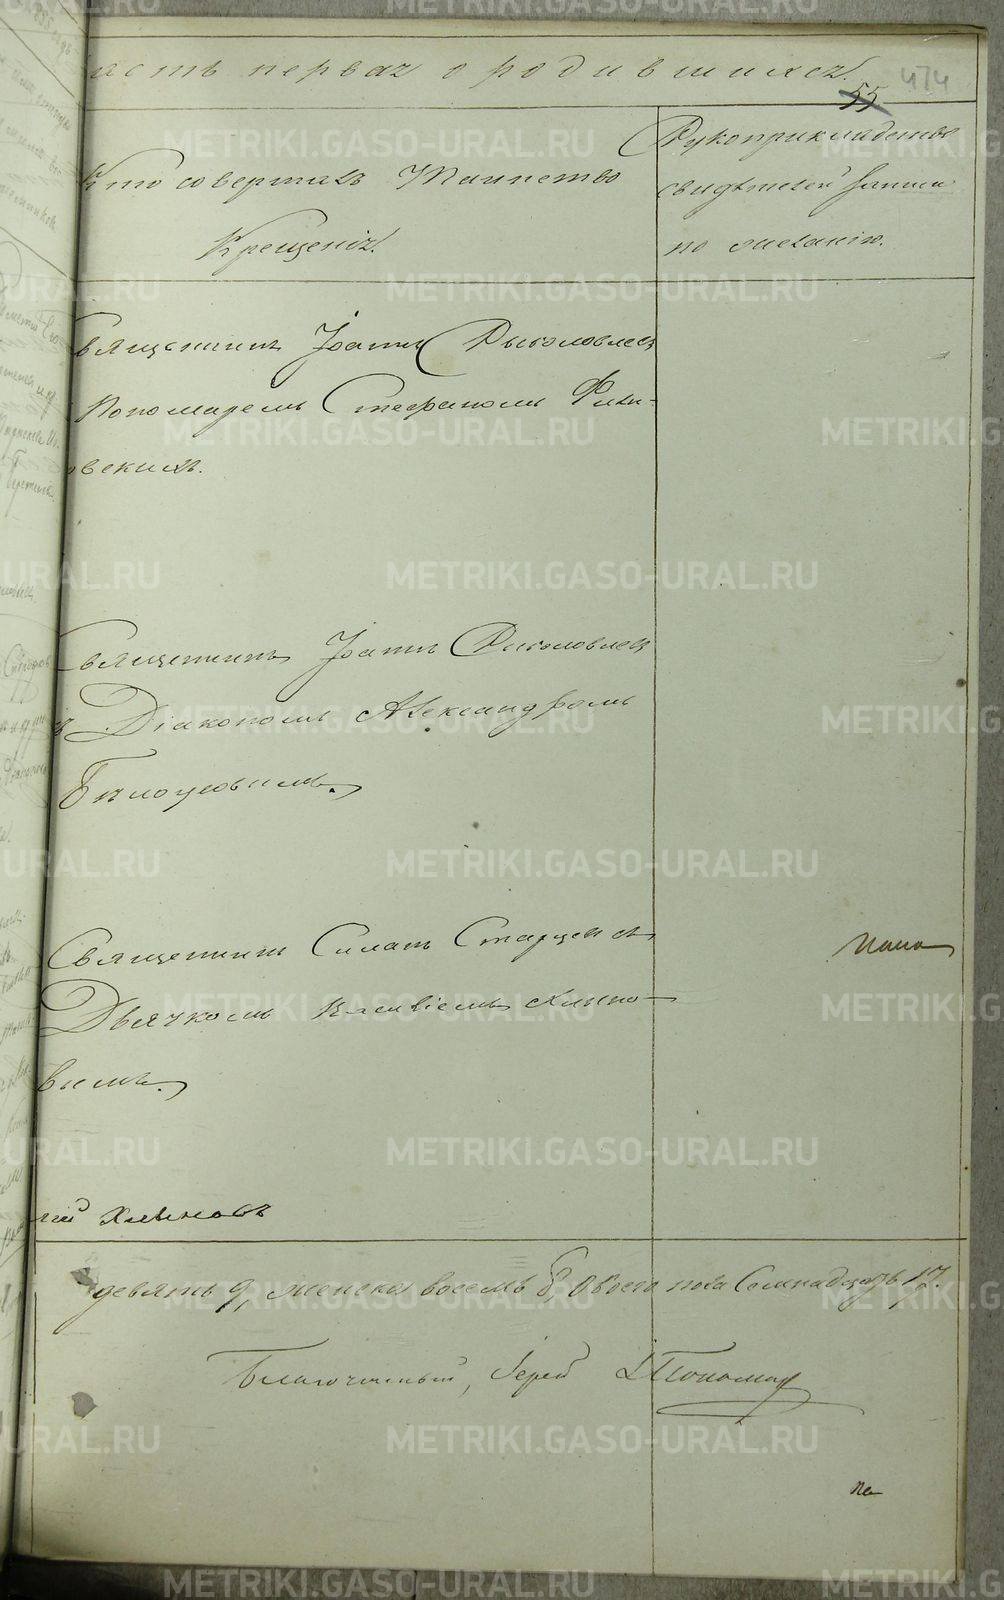 асть первая о родившихся.
474
55
Кто совершалъ Таинство
Крещенія.
Рукоприкладство
свидѣтелей записи
по желанію.
Священникъ Іоаннъ Рыболовлевъ
Пономаремъ Стефаномъ
овскимъ.
Священникъ Іоаннъ Рыболовлевъ
съ Діакономъ Александромъ
Бѣлоусовымъ.
Священникъ Симонъ Старцевъ съ
Дьячкомъ Хлыно-
вымъ.
Хлыновъ
девять 9, женска восемь 8, Обоего пола Семнадцать 17.
Благочинный, Іерей Пономар
METRIKI.GASO-URAL.RU